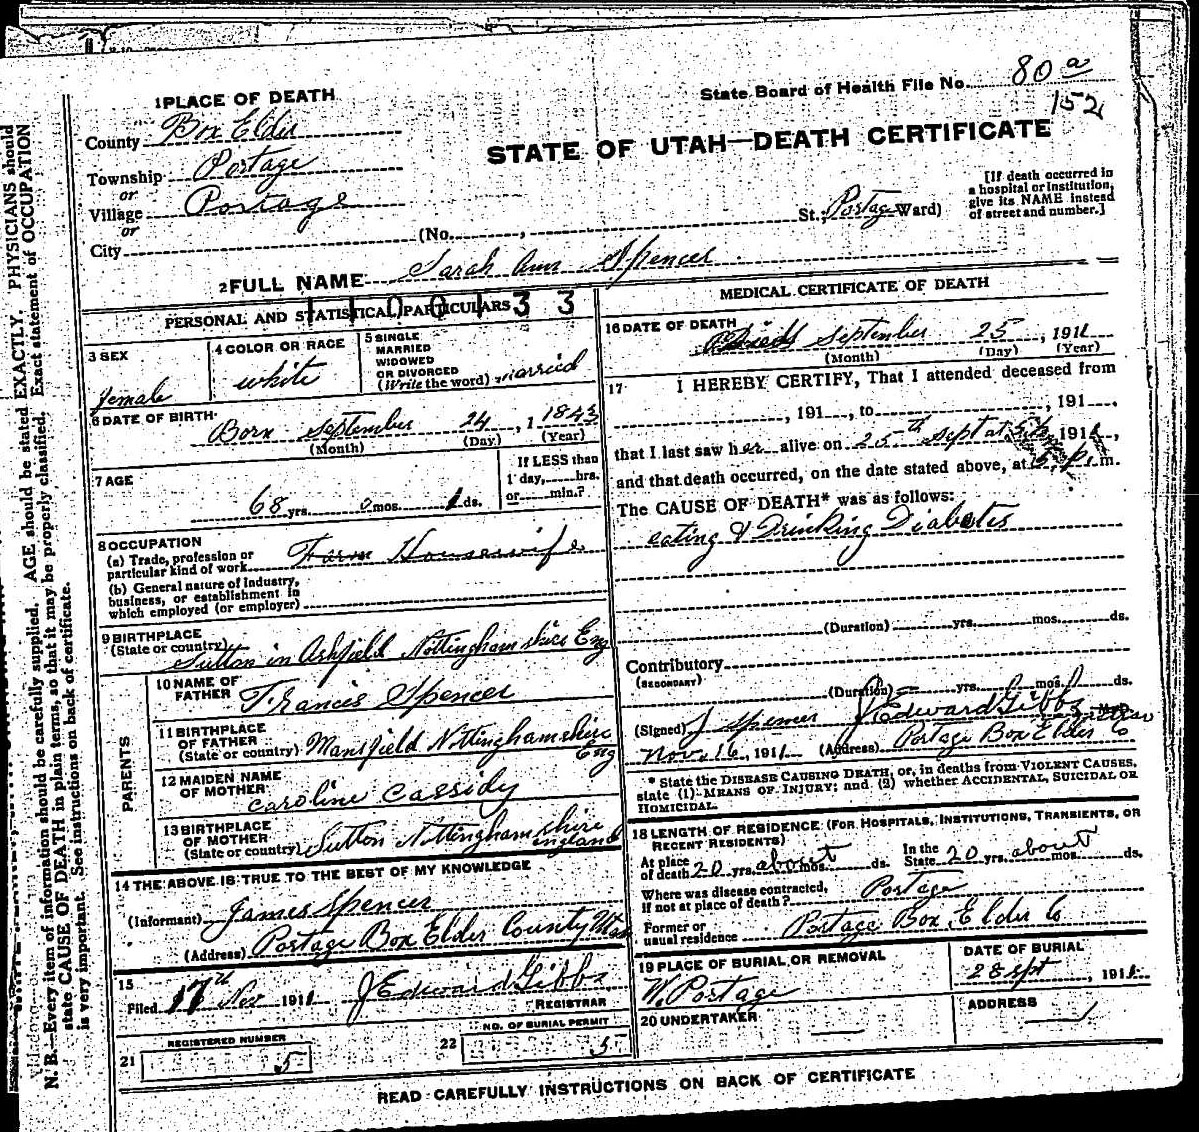 State Board of Health File No. 80 a
152
1 PLACE OF DEATH
County Box Elder
STATE OF UTAH—DEATH CERTIFICATE
Township Portage
or
Village Portage
or
City
(No. , St.; Portage Ward)
[If death occurred in
a hospital or institution,
give its NAME instead
of street and number.]
2 FULL NAME Sarah Ann Spencer
PERSONAL AND STATISTICAL PARTICULARS
33
3 SEX
female
4 COLOR OR RACE
white
5 SINGLE
MARRIED
WIDOWED
OR DIVORCED
(Write the word) married
6 DATE OF BIRTH
Born September 24, 1843
(Month) (Day) (Year)
7 AGE
68 yrs. 0 mos. 1 ds.
If LESS than
1 day, hrs.
or min.?
8 OCCUPATION
(a) Trade, profession or
particular kind of work Farm Housewife
(b) General nature of industry,
business, or establishment in
which employed (or employer)
9 BIRTHPLACE
(State or country)
Sutton in Ashfield Nottinghamshire Eng
PARENTS
10 NAME OF
FATHER Francis Spencer
11 BIRTHPLACE
OF FATHER
(State or country) Mansfield Nottinghamshire
Eng
12 MAIDEN NAME
OF MOTHER Caroline Cassidy
13 BIRTHPLACE
OF MOTHER
(State or country) Sutton Nottinghamshire
England
14 THE ABOVE IS TRUE TO THE BEST OF MY KNOWLEDGE
(Informant) James Spencer
(Address) Portage Box Elder County Utah
15
Filed 17th Nov 1911 J Edward Gibbs
REGISTRAR
REGISTERED NUMBER
21 5
NO. OF BURIAL PERMIT
22 5
MEDICAL CERTIFICATE OF DEATH
16 DATE OF DEATH
September 25, 1911
(Month) (Day) (Year)
17 I HEREBY CERTIFY, That I attended deceased from
, 191 , to , 191 ,
that I last saw her alive on 25th Sept at 1911,
and that death occurred, on the date stated above, at 5 p. m.
The CAUSE OF DEATH* was as follows:
eating & Drinking Diabetis
(Duration) yrs. mos. ds.
Contributory
(SECONDARY)
(Duration) yrs. mos. ds.
(Signed) J Spencer J Edward Gibbs
Nov. 16, 1911 (Address) Portage Box Elder Co
* State the DISEASE CAUSING DEATH, or, in deaths from VIOLENT CAUSES,
state (1) MEANS OF INJURY; and (2) whether ACCIDENTAL, SUICIDAL OR
HOMICIDAL.
18 LENGTH OF RESIDENCE (FOR HOSPITALS, INSTITUTIONS, TRANSIENTS, OR
RECENT RESIDENTS)
At place
of death 20 yrs. about mos. ds.
In the
State 20 yrs. about mos. ds.
Where was disease contracted,
if not at place of death? Portage
Former or
usual residence Portage Box Elder Co
19 PLACE OF BURIAL OR REMOVAL
W. Portage
DATE OF BURIAL
28 Spt, 1911
20 UNDERTAKER
ADDRESS
READ CAREFULLY INSTRUCTIONS ON BACK OF CERTIFICATE
N. B.—Every item of information should be carefully supplied. AGE should be stated EXACTLY. PHYSICIANS should
state CAUSE OF DEATH in plain terms, so that it may be properly classified. Exact statement of OCCUPATION
is very important. See instructions on back of certificate.